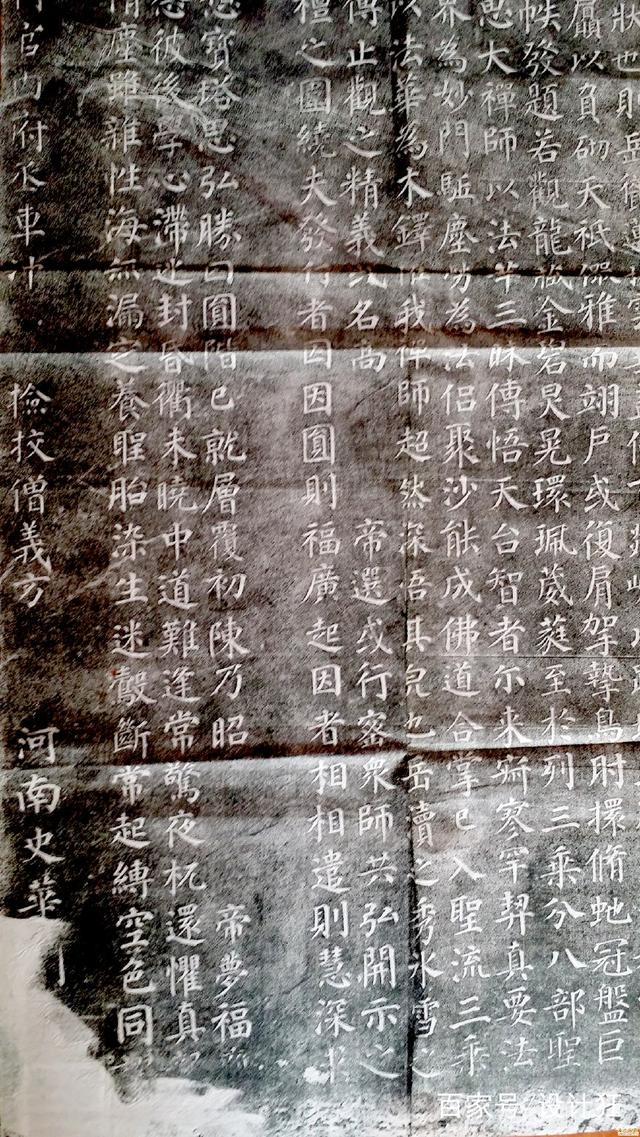 狀也則岳
贔以負砌天祇儼雅而翊戶或復肩挐摯鳥肘擐脩虵冠盤巨
帙發題若觀龍藏金碧炅晃環珮葳蕤至於列三乘分八部聖
思大禪師以法華三昧傳悟天台智者尒来寂寥罕契真要法
界為妙門駈塵勞為法侶聚沙能成佛道合掌已入聖流三乘
以法華為木鐸惟我禪師超然深悟其皃也岳瀆之秀氷雪之
傳止觀之精義或名高 帝選或行密衆師共弘開示之
檀之圍繞夫發行者因因圓則福廣起因者相相遣則慧深求
寶塔思弘勝因圓階已就層覆初陳乃昭 帝夢福
念彼後學心滯迷封昏衢未曉中道難逢常驚夜杌還懼真
情塵雖雜性海無漏定養聖胎染生迷鷇斷常起縛空色同
官内府丞車冲 檢校僧義方 河南史華
百家号/设计狂